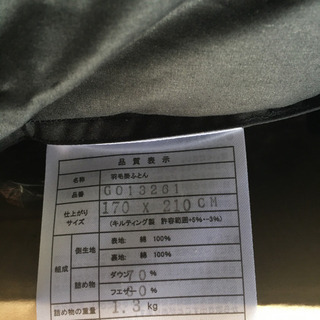 品質表示
名称 羽毛掛ふとん
品番 G013261
仕上がりサイズ 170 X 210 CM
(キルティング製 許容範囲+5%~-3%)
組成 側生地 表地: 綿 100%
裏地: 綿 100%
詰め物 ダウン 70 %
フェザー %
詰め物の重量 1.3 kg